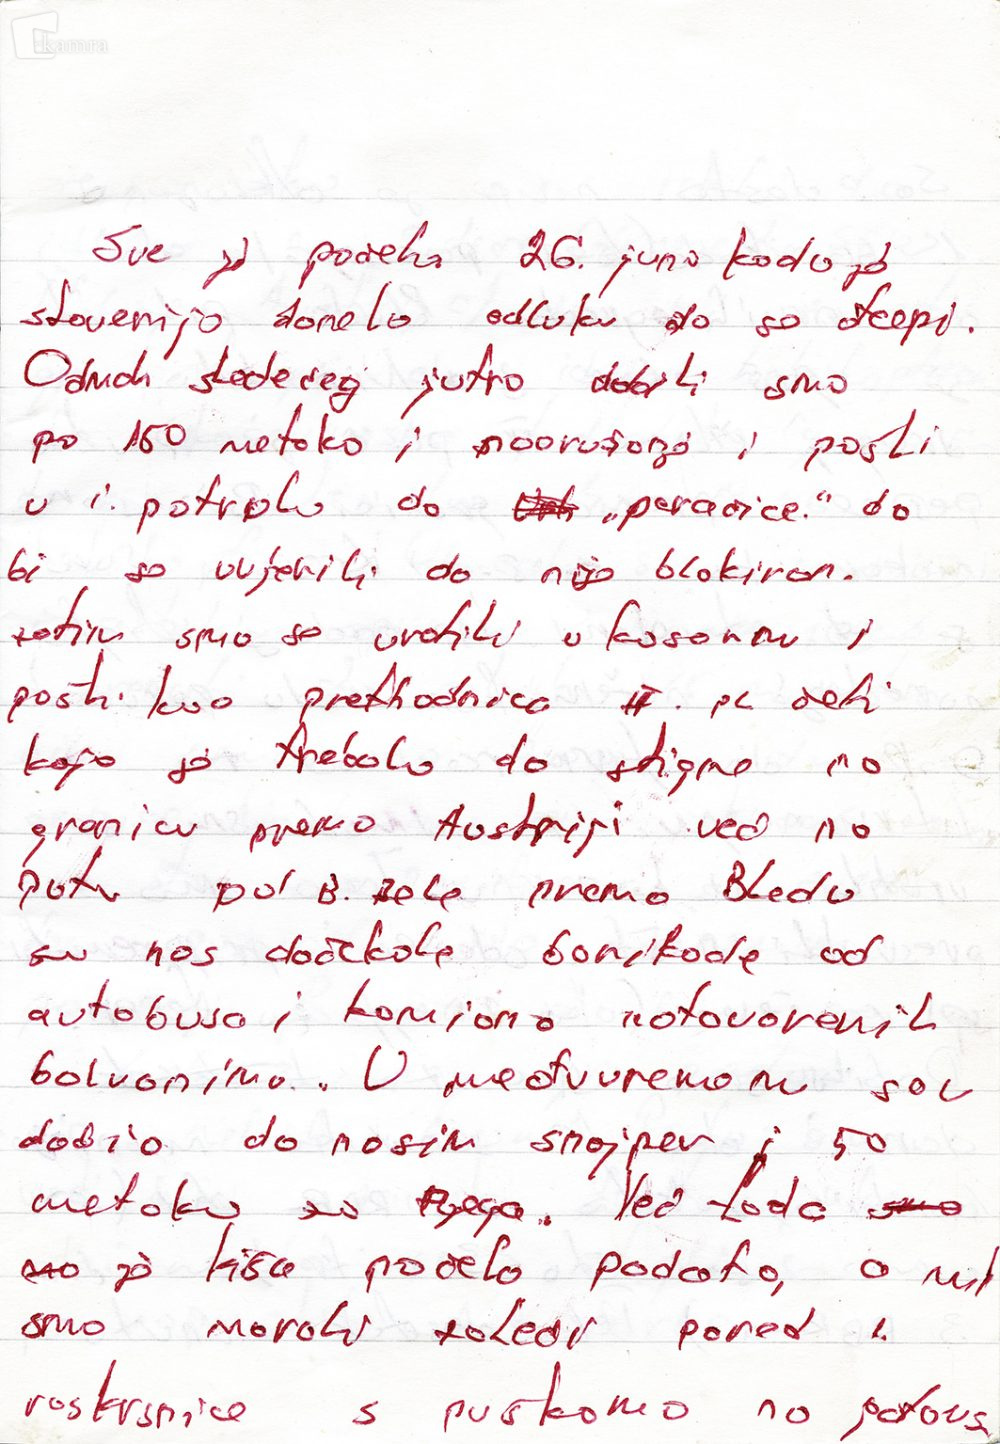 kamra
Sve je počelo 26. juna kada je
slovenija donela odluku da se otcepi.
Odmah sledećeg jutra dobili smo
po 150 metaka i naoružanje i pošli
u i. patrolu do „peračice." da
bi se uvjerili da nije blokiran.
zatim smo se vratili u kasarnu i
pošli kao prethodnica II. deli
koja je trebalo da stigne na
granicu prema Austriji već na
putu pol B. Bele prema Bledu
su nas dočekale barikade od
autobusa i kamiona natovarenih
balvanima. U međuvremenu sam
dobio da nosim snajper i 50
metaka za njega. Već tada
je kiša počela padati, a mi
smo morali zaleđi pored
raskrsnice s puškama na gotovs